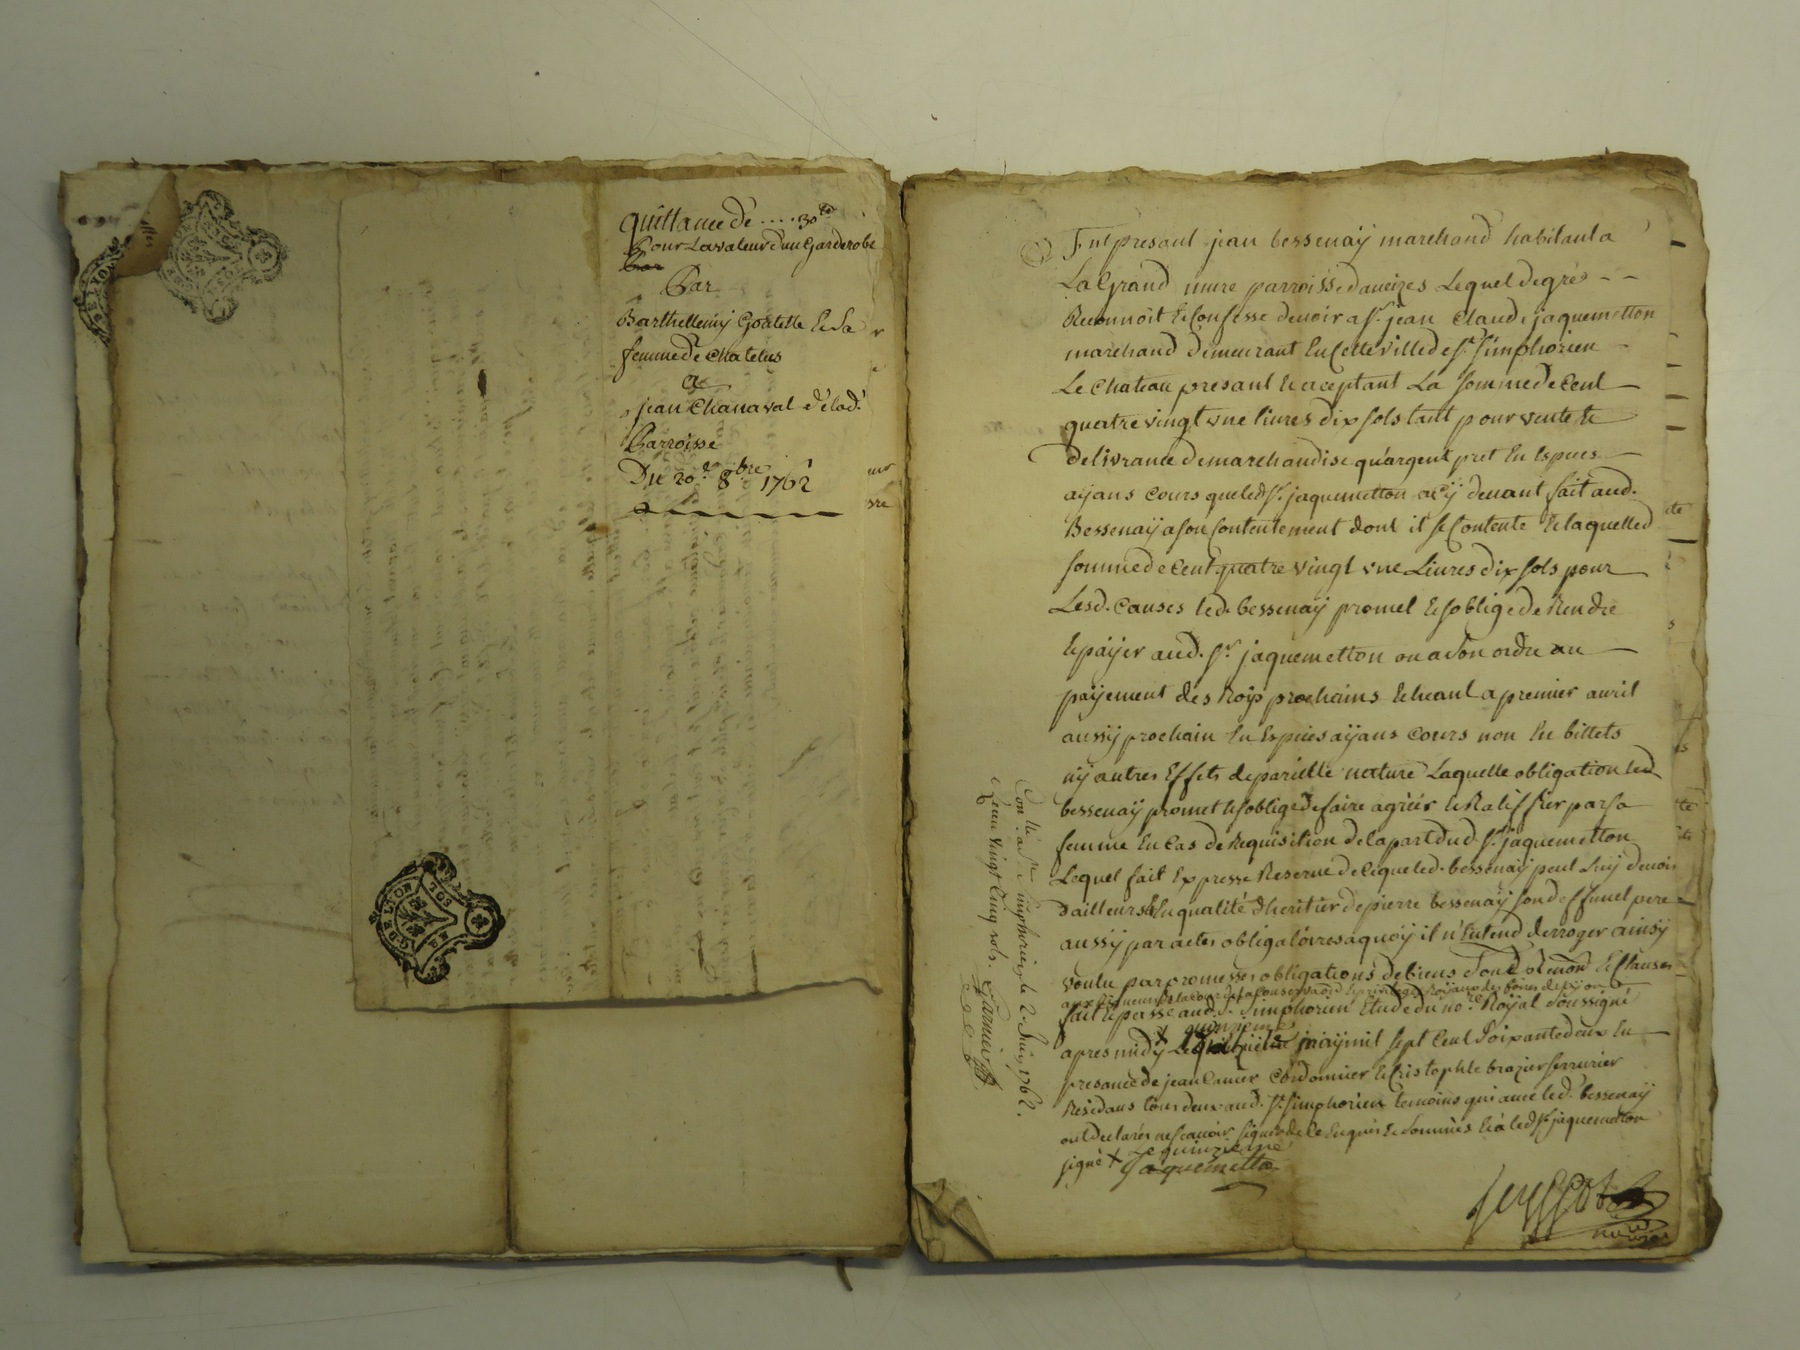 quittance de .... 30 tt
Pour La valeur d'un Garderobe
Par
Barthellemy Goutelle & Sa
femme de Chatelus
a
jean Chanaval de lad.
Parroisse
Du 20e 8bre 1762
G DE LYON
SOL
Fut presant jean bessenaÿ marchand habitant a
La Grand mure parroisse daveizes Lequel de gré
Reconnoit & Confesse devoir a sr. jean Claude jaquemetton
marchand demeurant En Cette ville de st. simphorien
Le Chateau presant & aceptant La somme de Cent
quatre vingt vne livres dix sols tant pour vente &
delivrance de marchandise qu'argent pret En Especes
aÿans Cours que led sr. jaquemetton a cÿ devant fait aud.
Bessenaÿ a son Contentement dont il se Contente & laquelle d
somme de Cent quatre vingt vne Livres dix sols pour
Lesd. Causes led. bessenaÿ promet & s'oblige de Rendre
& paÿer aud. sr. jaquemetton ou a son ordre au
paÿement des Roÿs prochains Echeant a premier avril
aussÿ prochain En Espèces aÿans Cours non En billets
nÿ autres Effets de parielle nature Laquelle obligation led.
bessenaÿ promet & s'oblige de faire agréer & Ratiffier par sa
femme En Cas de Requisition de la part dud sr. jaquemetton
Lequel fait Expresse Reserve de ce que led. bessenaÿ peut Luÿ devoir
d'ailleurs En qualité d'heritier de pierre bessenaÿ son deffunct pere
aussÿ par actes obligatoires a quoÿ il n'Entend derroger ainsÿ
voulu par promesses obligations de biens & Clauses
fait & passé aud. st. simphorien Etude du nore. Royal soussigné
quinzieme
apres midÿ X maÿ mil sept Cent soixante deux En
presance de jean Cordonnier & Cristophle brazier serrurier
Residans tous deux aud. st. simphorien temoins qui avec led. bessenaÿ
ont declarés ne scavoir signer de ce Enquis & sommés & a led sr. jaquemetton
signé X Le quinzieme
Jaquemetton
Con.llé a st. simphorien le 2. Juin 1762.
Reçu vingt Cinq sols. Garnier